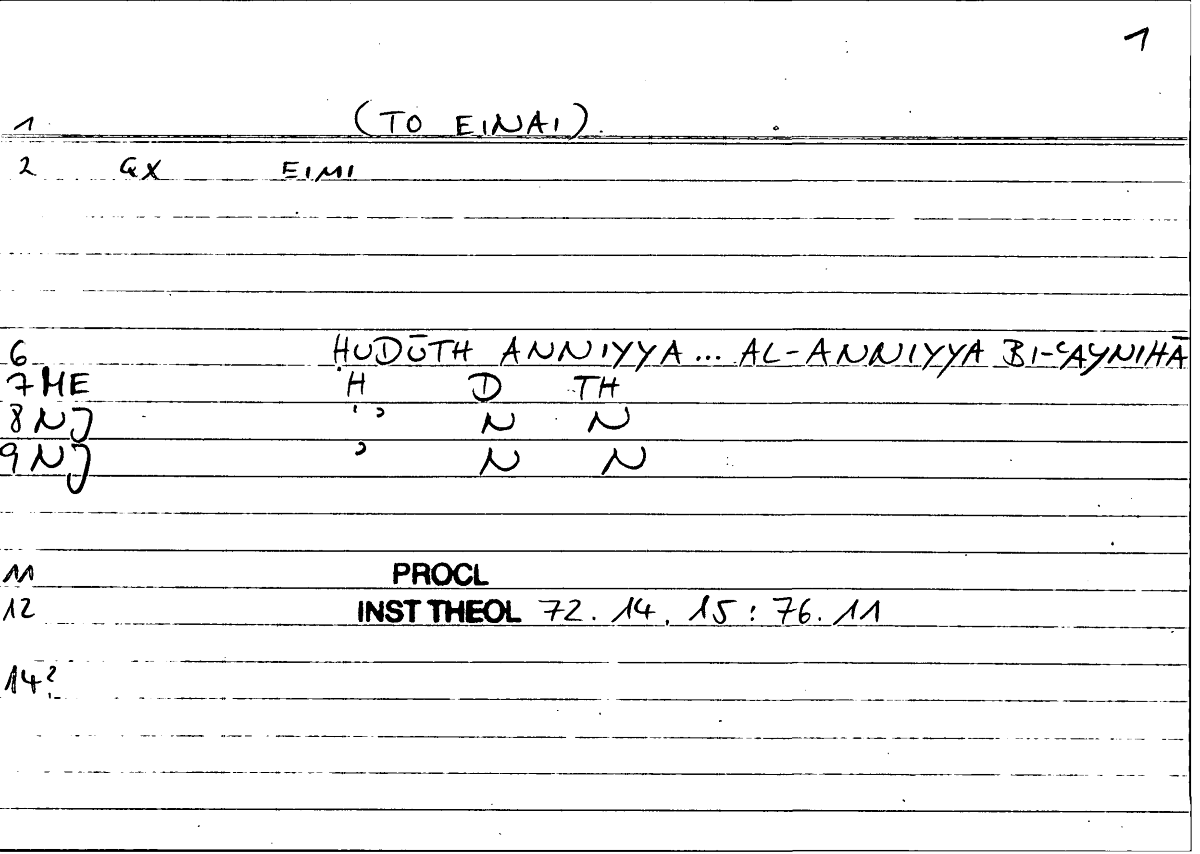 1
1 (TO EINAI).
2 GX EIMI
6 ḤUDŪTH ANNIYYA... AL-ANNIYYA BI-ʿAYNIHĀ
7 ME H D TH
8 NJ ʾʾ N N
9 NJ ʾ N N
11 PROCL
12 INST THEOL 72.14, 15 : 76.11
14?